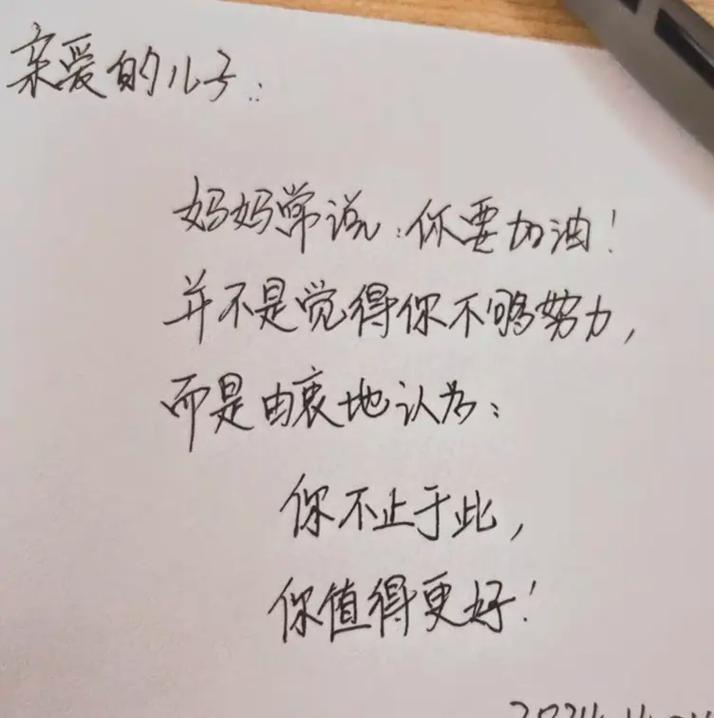 亲爱的儿子:
妈妈常说:你要加油!
并不是觉得你不够努力,
而是由衷地认为:
你不止于此,
你值得更好!